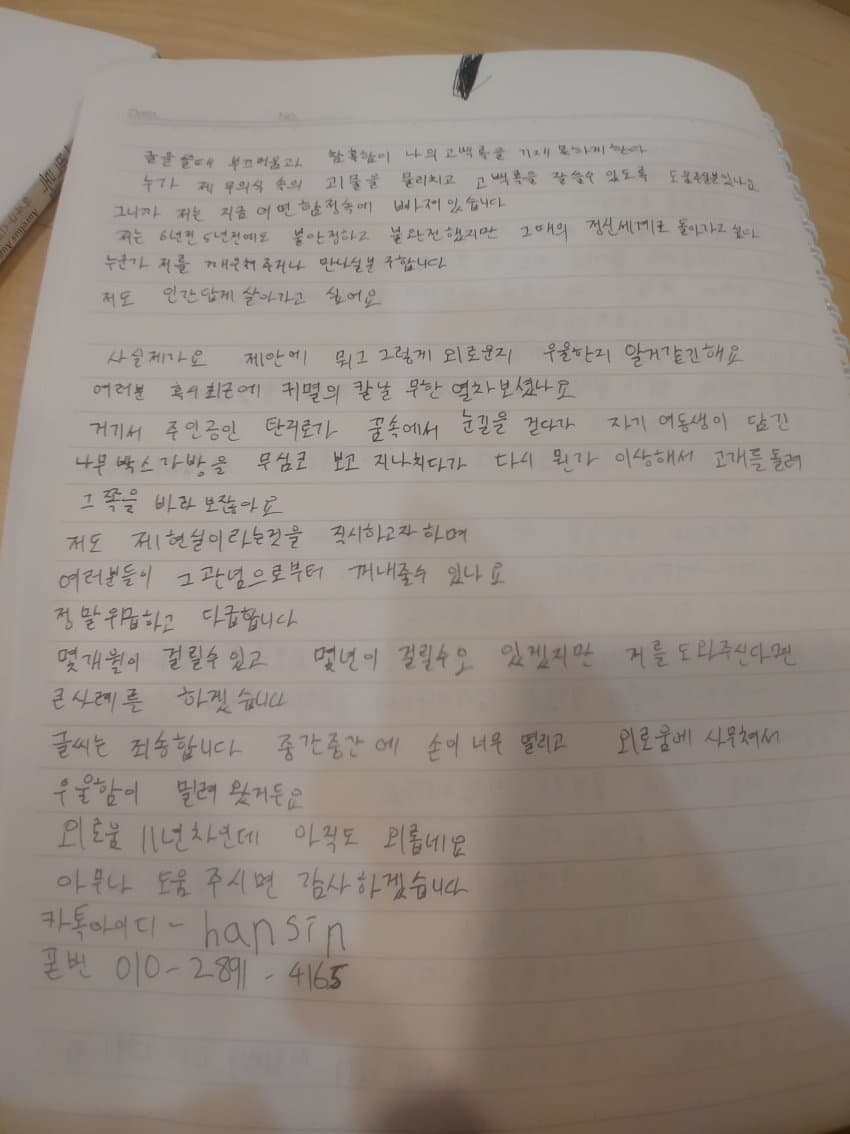 글을 쓸때 부끄러움과 참혹함이 나의 고백록을 기재 못하게 한다
누가 제 무의식 속의 괴물을 물리치고 고백록을 잘 쓸수 있도록 도움주실분있나요
그니까 저는 지금 어떤 함정속에 빠져있습니다
저는 6년전 5년전에도 불안정하고 불완전했지만 그때의 정신세계로 돌아가고 싶다
누군가 저를 깨운해주거나 만나실분 구합니다
저도 인간답게 살아가고 싶어요
사실제가요 제안에 뭐그 그렇게 외로운지 우울한지 알거같긴해요
여러분 혹시 최근에 귀멸의 칼날 무한 열차보셨나요
거기서 주인공인 탄지로가 꿈속에서 눈길을 걷다가 자기 여동생이 담긴
나무 박스가방을 무심코 보고 지나치다가 다시 뭔가 이상해서 고개를돌려
그 쪽을 바라 보잖아요
저도 제 현실이라는것을 직시하고자하며
여러분들이 그 관념으로부터 꺼내줄수 있나요
정말위급하고 다급합니다
몇개월이 걸릴수있고 몇년이 걸릴수도 있겠지만 저를 도와주신다면
큰사례를 하겠습니다
글씨는 죄송합니다 중간중간에 손이 너무 떨리고 외로움에 사무쳐서
우울함이 밀려 왔거든요
외로움 11년차인데 아직도 외롭네요
아무나 도움 주시면 감사하겠습니다
카톡아이디 - hansin
폰번 010 - 2891 - 4165